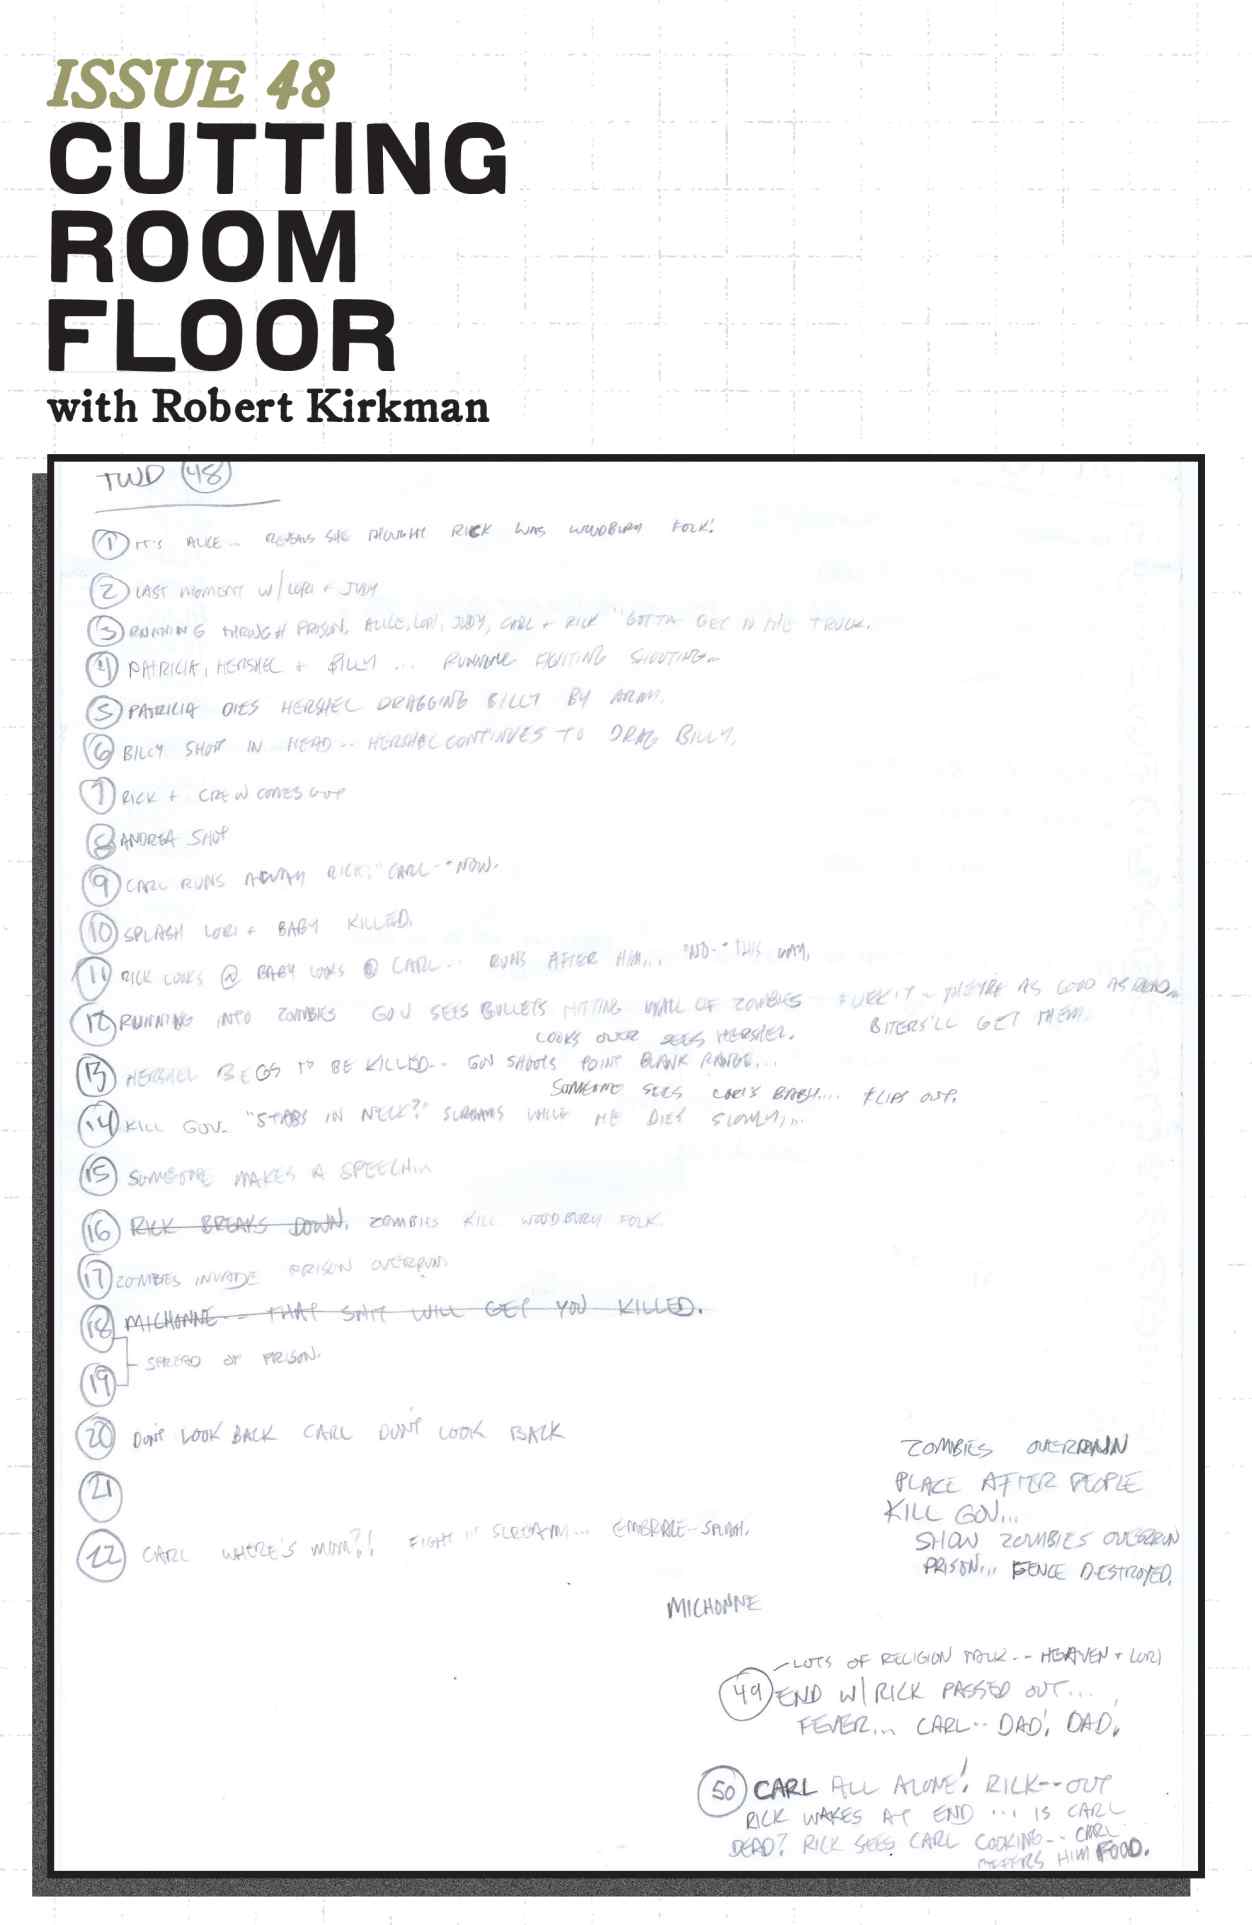 ISSUE 48
CUTTING
ROOM
FLOOR
with Robert Kirkman
TWD 48
1 IT'S ALICE... REVEALS SHE THOUGHT RICK WAS WOODBURY FOLK!
2 LAST MOMENT W/ LORI + JUDY
3 RUNNING THROUGH PRISON, ALICE, LORI, JUDY, CARL + RICK "GOTTA GET TO THE TRUCK.
4 PATRICIA, HERSHEL + BILLY ... RUNNING FIGHTING SHOOTING...
5 PATRICIA DIES HERSHEL DRAGGING BILLY BY ARM.
6 BILLY SHOT IN HEAD-- HERSHEL CONTINUES TO DRAG BILLY.
7 RICK + CREW COMES OUT
8 ANDREA SHOT
9 CARL RUNS AWAY RICK: "CARL--" NOW.
10 SPLASH LORI + BABY KILLED.
11 RICK LOOKS @ BABY LOOKS @ CARL-- RUNS AFTER HIM... "NO--" THIS WAY.
12 RUNNING INTO ZOMBIES GOV SEES BULLETS HITTING WALL OF ZOMBIES FUCK IT-- THEY'RE AS GOOD AS DEAD...
LOOKS OVER SEES HERSHEL. BITERS'LL GET THEM.
13 HERSHEL BEGS TO BE KILLED-- GOV SHOOTS POINT BLANK RANGE...
SOMEONE SEES LORI'S BABY... FLIPS OUT.
14 KILL GOV. "STABS IN NECK?" SCREAMS WHILE HE DIES SLOWLY...
15 SOMEONE MAKES A SPEECH...
16 RICK BREAKS DOWN. ZOMBIES KILL WOODBURY FOLK.
17 ZOMBIES INVADE PRISON OVERRUN.
18 MICHONNE-- THAT SHIT WILL GET YOU KILLED.
SPREAD OF PRISON.
19
20 DON'T LOOK BACK CARL DON'T LOOK BACK
21
22 CARL WHERE'S MOM?! FIGHT SCREAM... EMBRACE-- SPLASH.
ZOMBIES OVERRUN
PLACE AFTER PEOPLE
KILL GOV...
SHOW ZOMBIES OVERRUN
PRISON... FENCE DESTROYED.
MICHONNE
-LOTS OF RELIGION TALK-- HEAVEN + LORI
49 END W/ RICK PASSED OUT...
FEVER... CARL-- DAD! DAD!
50 CARL ALL ALONE! RICK--OUT
RICK WAKES AT END ... IS CARL
DEAD? RICK SEES CARL COOKING-- CARL
OFFERS HIM FOOD.